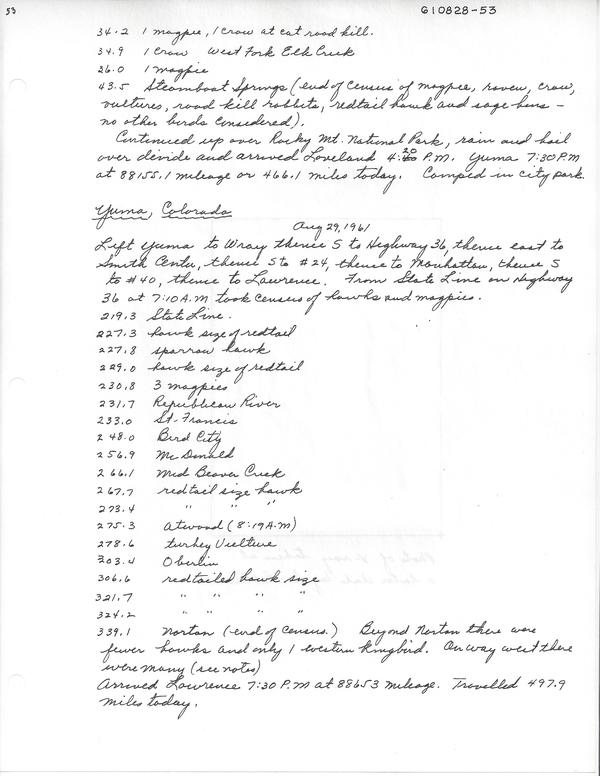 53
610828-53
34.2 1 magpie, 1 crow at cat road kill.
34.9 1 crow West Fork Elk Creek
26.0 1 magpie
43.5 Steamboat Springs (end of census of magpie, raven, crow,
vultures, road kill rabbits, redtail hawk and sage hens –
no other birds considered).
Continued up over Rocky Mt. National Park, rain and hail
over divide and arrived Loveland 4:20 P.M. Yuma 7:30 P.M
at 88155.1 mileage or 466.1 miles today. Camped in city park.
Yuma, Colorado
Aug 29, 1961
Left Yuma to Wray thence S to Highway 36, thence east to
Smith Center, thence S to #24, thence to Manhattan, thence S
to #40, thence to Lawrence. From State Line on Highway
36 at 7:10 A.M took census of hawks and magpies.
219.3 State Line.
227.3 hawk size of redtail
227.8 sparrow hawk
229.0 hawk size of redtail
230.8 3 magpies
231.7 Republican River
233.0 St. Francis
248.0 Bird City
256.9 Mc Donald
266.1 Mid Beaver Creek
267.7 redtail size hawk
273.4 " " "
275.3 Atwood (8:19 A.M)
278.6 turkey Vulture
303.4 Oberlin
306.6 redtailed hawk size
321.7 " " " "
324.2 " " " "
339.1 Norton (end of census.) Beyond Norton there were
fewer hawks and only 1 western kingbird. On way west there
were many (see notes)
Arrived Lawrence 7:30 P.M at 88653 mileage. Travelled 497.9
miles today.